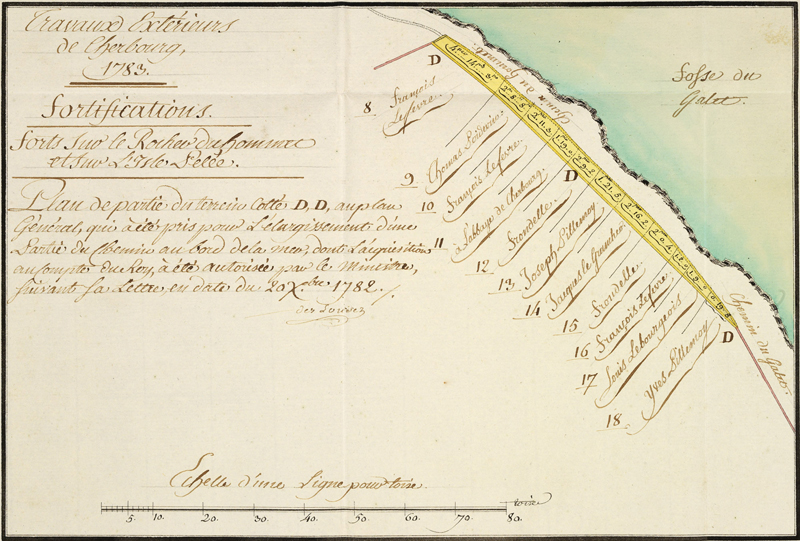 Travaux Extérieurs
de Cherbourg,
1783.
Fortifications.
Forts sur le Rocher du hommet
et sur L'Isle Pelée.
Plan de partie du terrein Cotté D, D, au plan
Général, qui a été pris pour L'élargissement d'une
Partie du Chemin au bord de la mer, dont l'aquisition
au compte du Roy, a été autorisée par le Ministre,
suivant sa Lettre, en date du 20 Xbre 1782.
D
D
D
Fosse du
Galet.
Chemin du hommet
Chemin du Galet.
8 François Lefevre
9 Thomas
10 François Lefevre
11 L'abbaye de Cherbourg
12 Frondelle
13 Joseph Dittemoy
14 Jacques le
15 Frondelle
16 François Lefevre
17 Louis Lebourgeois
18 Yves Dittemoy
Echelle d'une Ligne pour toise.
5. 10. 20. 30. 40. 50. 60. 70. 80. toise